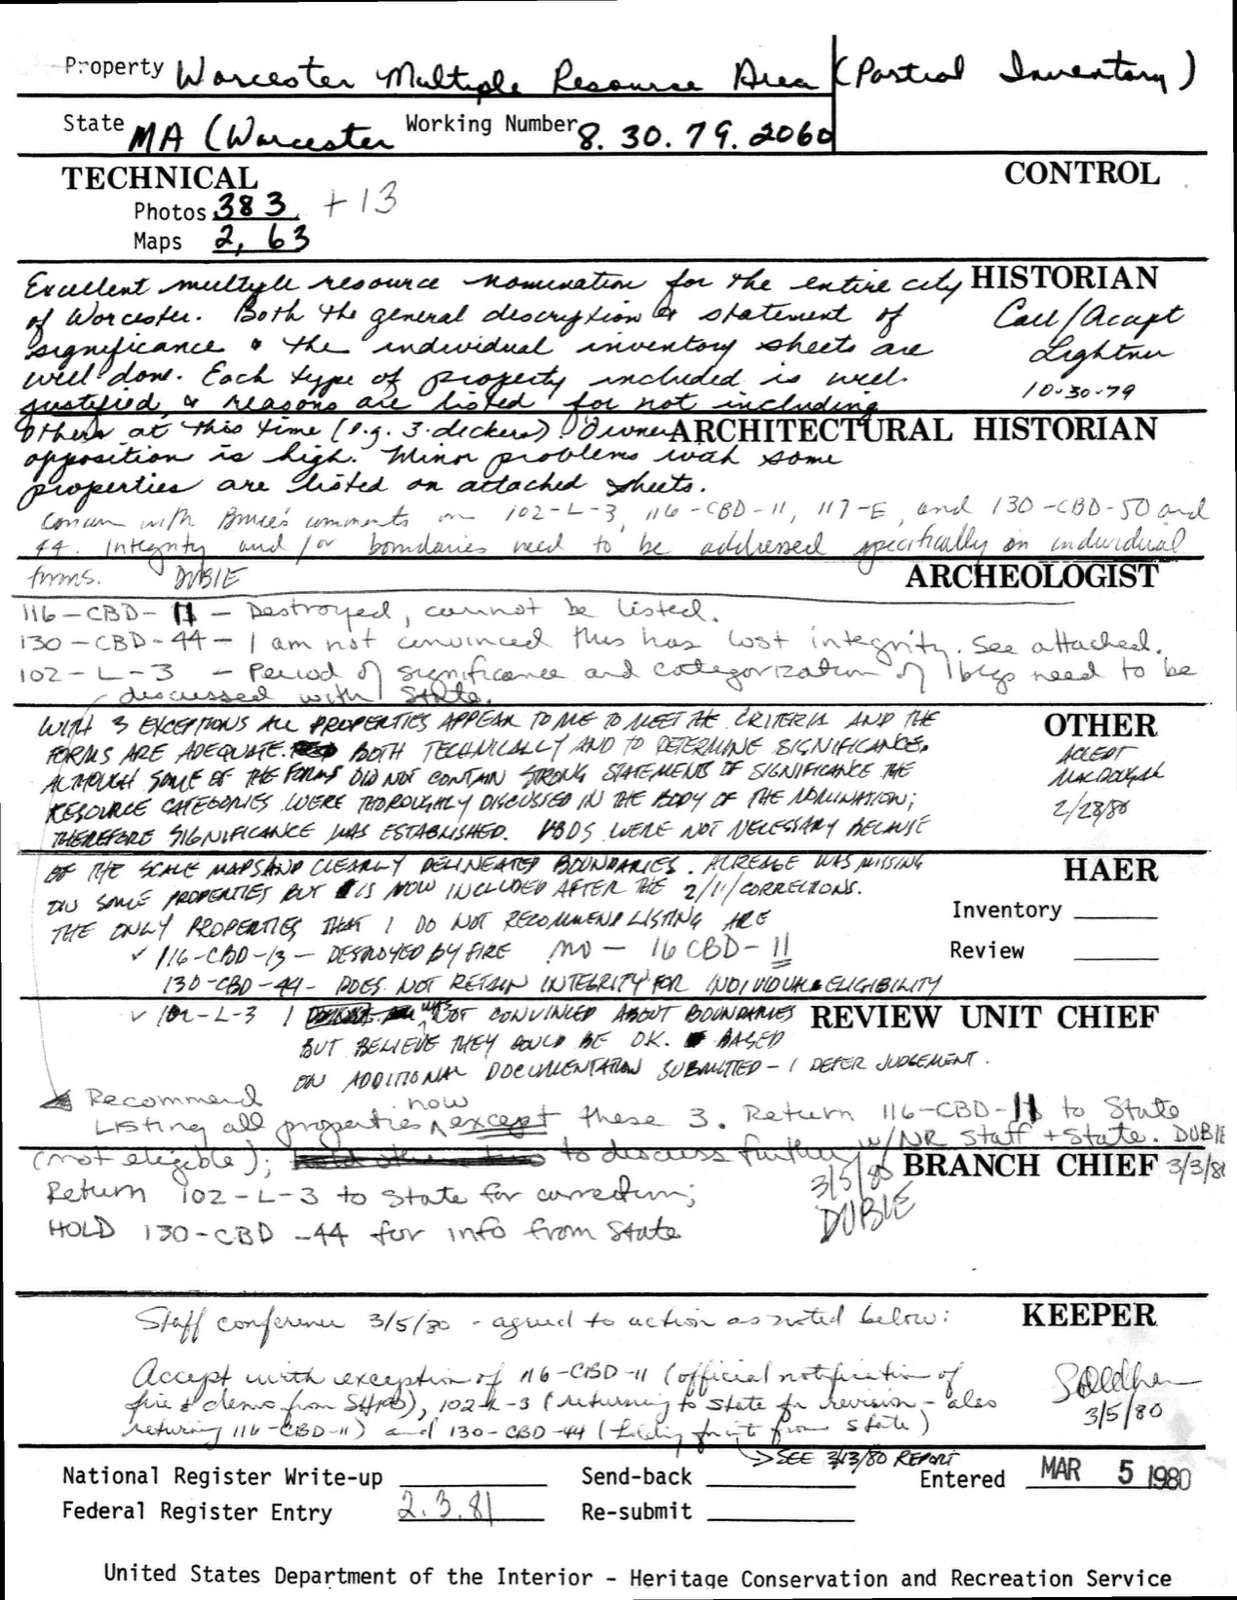 Property Worcester Multiple Resource Area (Partial Inventory)
State MA (Worcester Working Number 8.30.79.2060
TECHNICAL
CONTROL
Photos 383 + 13
Maps 2, 63
Excellent multiple resource nomination for the entire city HISTORIAN
of Worcester. Both the general description & statement of Call/Accept
significance & the individual inventory sheets are Lightner
well done. Each type of property included is well- 10-30-79
justified, & reasons are listed for not including
others at this time (e.g. 3-deckers). Owner ARCHITECTURAL HISTORIAN
opposition is high. Minor problems with some
properties are listed on attached sheets.
Concur with Bruce's comments on 102-L-3, 116-CBD-11, 117-E, and 130-CBD-50 and
44. Integrity and/or boundaries need to be addressed specifically on individual
forms. DUBIE
ARCHEOLOGIST
116-CBD-11 - Destroyed, cannot be listed.
130-CBD-44 - I am not convinced this has lost integrity. See attached.
102-L-3 - Period of significance and categorization of bldgs need to be
discussed with State.
WITH 3 EXCEPTIONS ALL PROPERTIES APPEAR TO ME TO MEET THE CRITERIA AND THE OTHER
FORMS ARE ADEQUATE. BOTH TECHNICALLY AND TO DETERMINE SIGNIFICANCE. ACCEPT
ALTHOUGH SOME OF THE FORMS DID NOT CONTAIN STRONG STATEMENTS OF SIGNIFICANCE THE MACDOUGAL
RESOURCE CATEGORIES WERE THOROUGHLY DISCUSSED IN THE BODY OF THE NOMINATION; 2/28/80
THEREFORE SIGNIFICANCE WAS ESTABLISHED. VBDS WERE NOT NECESSARY BECAUSE
OF THE SCALE MAPS AND CLEARLY DELINEATED BOUNDARIES. ACREAGE WAS MISSING HAER
ON SOME PROPERTIES BUT IS NOW INCLUDED AFTER THE 2/11/ CORRECTIONS.
THE ONLY PROPERTIES THAT I DO NOT RECOMMEND LISTING ARE Inventory
✓ 116-CBD-13 - DESTROYED BY FIRE NO - 116 CBD-11 Review
130-CBD-44 - DOES NOT RETAIN INTEGRITY FOR INDIVIDUAL ELIGIBILITY
✓ 102-L-3 I WAS NOT CONVINCED ABOUT BOUNDARIES REVIEW UNIT CHIEF
BUT BELIEVE THEY COULD BE OK. BASED
ON ADDITIONAL DOCUMENTATION SUBMITTED - I DEFER JUDGEMENT.
Recommend
Listing all properties now except these 3. Return 116-CBD-11 to State
(not eligible); to discuss further w/NR staff + State. DUBIE
BRANCH CHIEF 3/3/80
Return 102-L-3 to State for correction; 3/5/80
HOLD 130-CBD-44 for info from State DUBIE
KEEPER
Staff conference 3/5/80 - agreed to action as noted below:
Accept with exception of 116-CBD-11 (official notification of
fire & demo from SHPO), 102-L-3 (returning to State for revision - also
returning 116-CBD-11) and 130-CBD-44 (holding for info from State)
3/5/80
SEE 3/13/80 REPORT
National Register Write-up Send-back Entered MAR 5 1980
Federal Register Entry 2.3.81 Re-submit
United States Department of the Interior - Heritage Conservation and Recreation Service